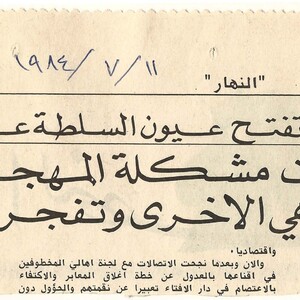 ١٩٨٤/٧/١١
"النهار"
تفتح عيون السلطة عـ
ت مشكلة المهجـ
هي الاخرى وتفجر
واقتصاديا٠
والان وبعدما نجحت الاتصالات مع لجنة اهالي المخطوفين
في اقناعها بالعدول عن خطة اغلاق المعابر والاكتفاء
بالاعتصام في دار الافتاء تعبيرا عن نقمتهم والحؤول دون